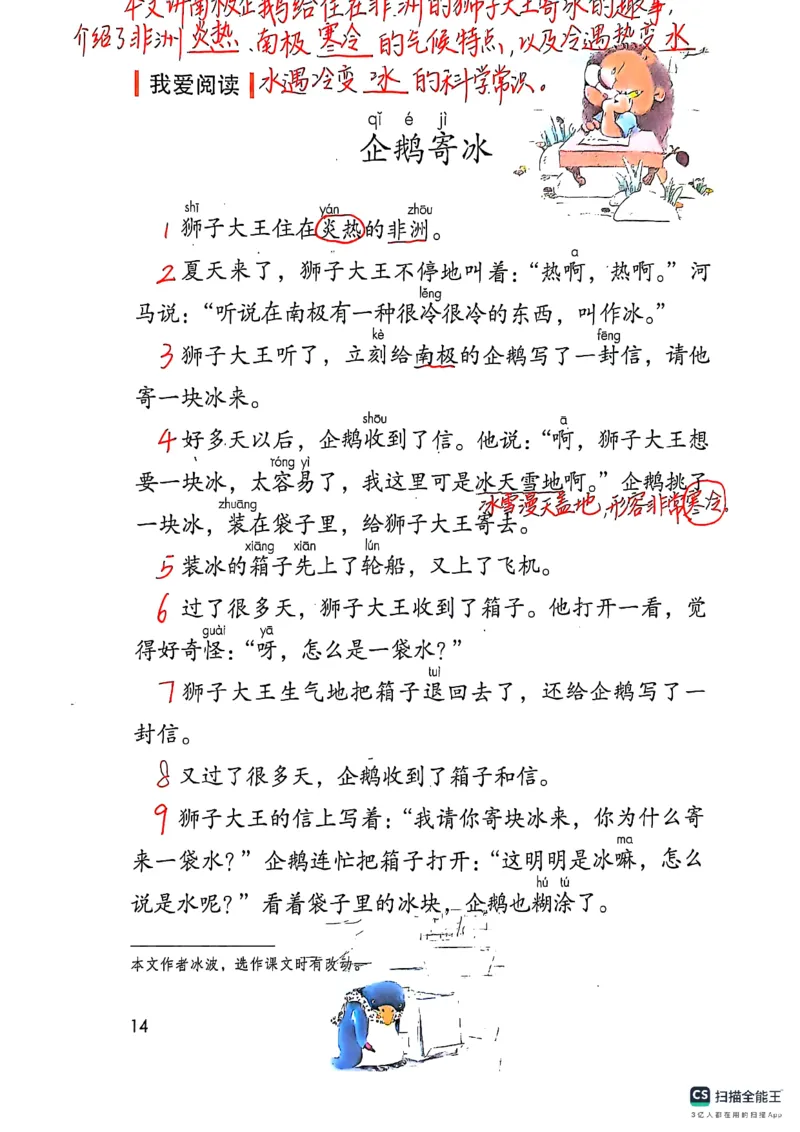 本文讲南极企鹅给住在非洲的狮子大王寄冰的趣事,
介绍了非洲炎热、南极寒冷的气候特点,以及冷遇热变水
我爱阅读 水遇冷变冰的科学常识。
qǐ é jì
企鹅寄冰
shī yán zhōu
1 狮子大王住在炎热的非洲。
a
2 夏天来了，狮子大王不停地叫着：“热啊，热啊。”河
lěng
马说：“听说在南极有一种很冷很冷的东西，叫作冰。”
kè fēng
3 狮子大王听了，立刻给南极的企鹅写了一封信，请他
寄一块冰来。
shōu ā
4 好多天以后，企鹅收到了信。他说：“啊，狮子大王想
róng yì
要一块冰，太容易了，我这里可是冰天雪地啊。”企鹅挑了
冰雪漫天盖地,形容非常寒冷.
zhuāng
一块冰，装在袋子里，给狮子大王寄去。
xiāng xiān lún
5 装冰的箱子先上了轮船，又上了飞机。
6 过了很多天，狮子大王收到了箱子。他打开一看，觉
guài yā
得好奇怪：“呀，怎么是一袋水？”
tuì
7 狮子大王生气地把箱子退回去了，还给企鹅写了一
封信。
8 又过了很多天，企鹅收到了箱子和信。
9 狮子大王的信上写着：“我请你寄块冰来，你为什么寄
ma
来一袋水？”企鹅连忙把箱子打开：“这明明是冰嘛，怎么
hú tú
说是水呢？”看着袋子里的冰块，企鹅也糊涂了。
本文作者冰波，选作课文时有改动。
14
CS 扫描全能王
3亿人都在用的扫描App